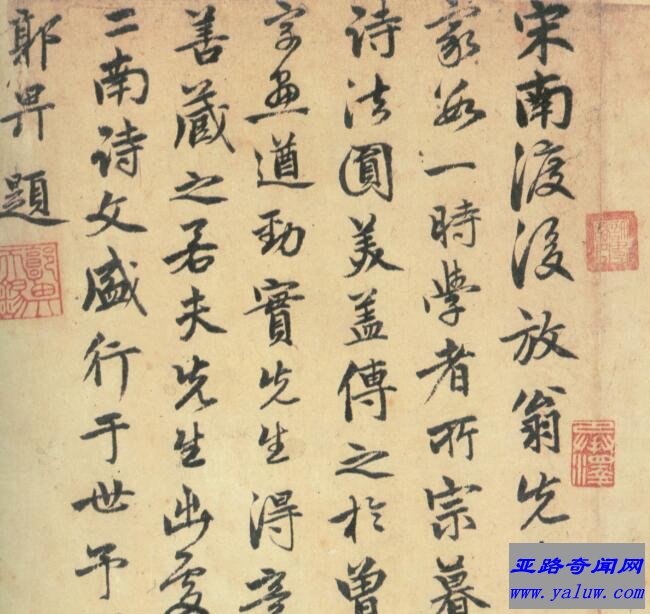 宋南渡后放翁先
家数一時學者所宗暮
诗法圓美盖傳之於曾
字画遒勁實先生得意
善藏之若夫先生出處
二南诗文盛行于世予
郭畀題
亚路奇闻网
www.yaluw.com